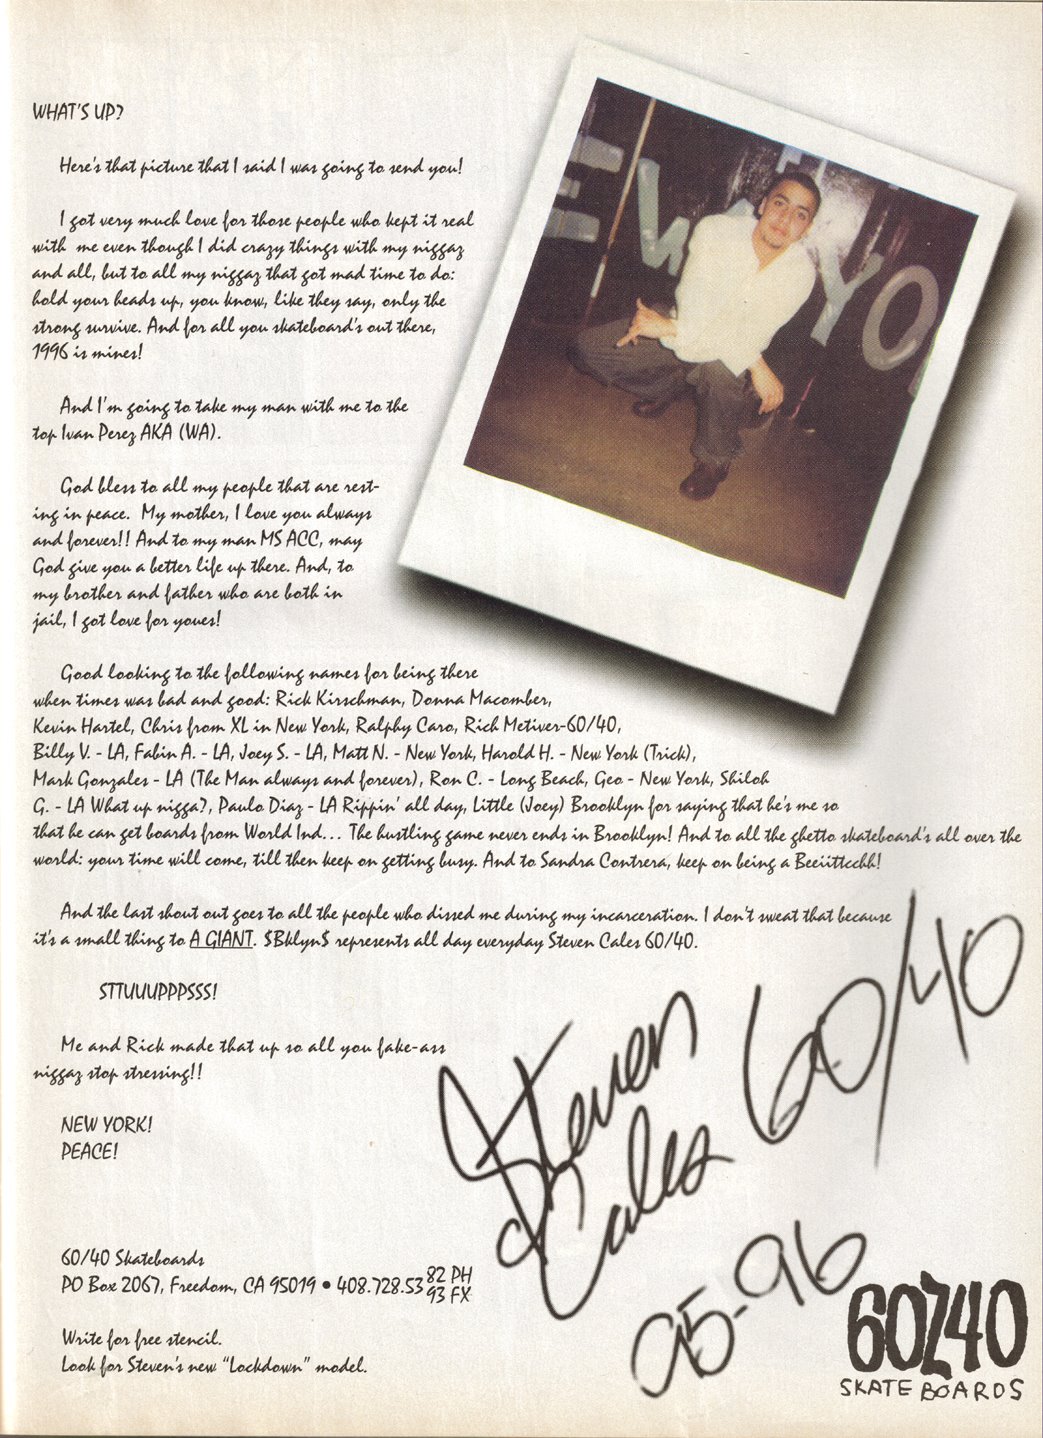 WHAT'S UP?
Here's that picture that I said I was going to send you!
I got very much love for those people who kept it real
with me even though I did crazy things with my niggaz
and all, but to all my niggaz that got mad time to do:
hold your heads up, you know, like they say, only the
strong survive. And for all you skateboard's out there,
1996 is mines!
And I'm going to take my man with me to the
top Ivan Perez AKA (WA).
God bless to all my people that are rest-
ing in peace. My mother, I love you always
and forever!! And to my man MS ACC, may
God give you a better life up there. And, to
my brother and father who are both in
jail, I got love for youes!
Good looking to the following names for being there
when times was bad and good: Rick Kirschman, Donna Macomber,
Kevin Hartel, Chris from XL in New York, Ralphy Caro, Rich Metiver-60/40,
Billy V. - LA, Fabin A. - LA, Joey S. - LA, Matt N. - New York, Harold H. - New York (Trick),
Mark Gonzales - LA (The Man always and forever), Ron C. - Long Beach, Geo - New York, Shiloh
G. - LA What up nigga?, Paulo Diaz - LA Rippin' all day, Little (Joey) Brooklyn for saying that he's me so
that he can get boards from World Ind... The hustling game never ends in Brooklyn! And to all the ghetto skateboard's all over the
world: your time will come, till then keep on getting busy. And to Sandra Contrera, keep on being a Beeiittcchh!
And the last shout out goes to all the people who dissed me during my incarceration. I don't sweat that because
it's a small thing to A GIANT. $Bklyn$ represents all day everyday Steven Cales 60/40.
STTUUUPPPSSS!
Me and Rick made that up so all you fake-ass
niggaz stop stressing!!
NEW YORK!
PEACE!
Steven
Cales 60/40
95-96
60/40 Skateboards
PO Box 2067, Freedom, CA 95019 • 408.728.53 82 PH
93 FX
Write for free stencil.
Look for Steven's new "Lockdown" model.
60/40
SKATEBOARDS
EW YO